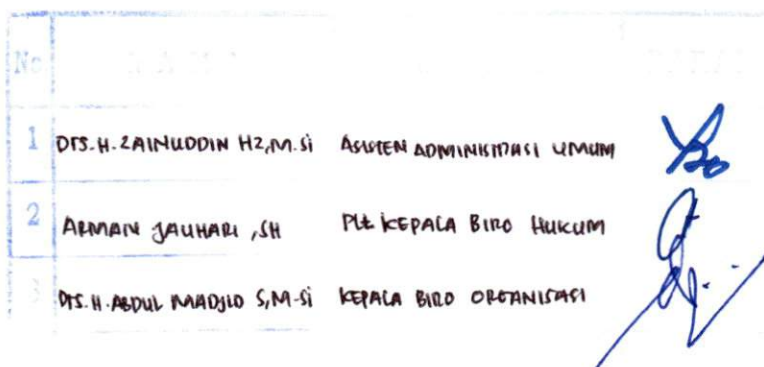 No
1 DTS. H. ZAINUDDIN HZ, M.Si ASISTEN ADMINISTRASI UMUM
2 ARMAN JAUHARI, SH Plt KEPALA BIRO HUKUM
3 DTS. H. ABDUL MADJID S, M-Si KEPALA BIRO ORGANISASI